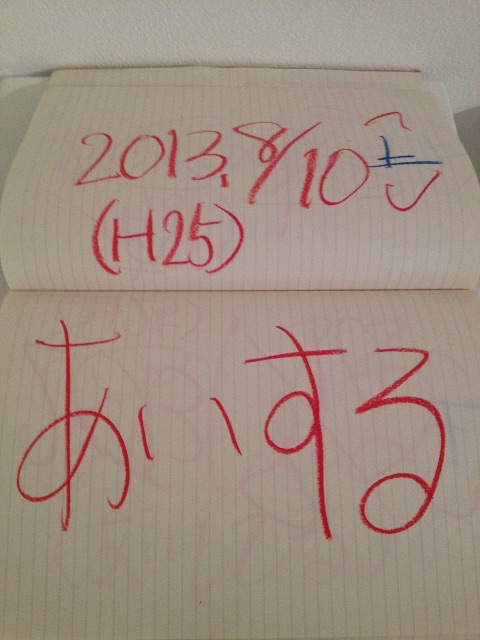 2013.8/10(土)
(H25)
あいする